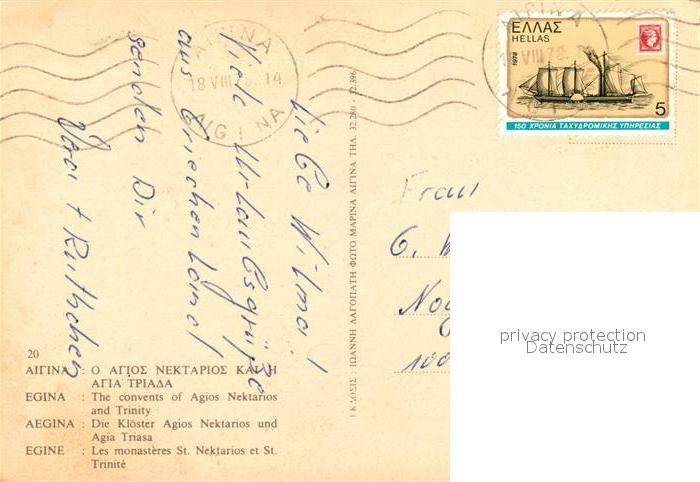 ΑΙΓΙΝΑ
18 VIII 78. 14
AIGINA
ΕΛΛΑΣ
HELLAS
1978
5
150 ΧΡΟΝΙΑ ΤΑΧΥΔΡΟΜΙΚΗΣ ΥΠΗΡΕΣΙΑΣ
Liebe Wilma!
Viele Urlaubsgrüße
aus Griechenland
senden Dir
+ Ruthchen
Frau
privacy protection
Datenschutz
ΕΚΔΟΣΙΣ: ΙΩΑΝΝΗ ΛΑΓΟΠΑΤΗ ΦΩΤΟ ΜΑΡΙΝΑ ΑΙΓΙΝΑ ΤΗΛ. 32.280 - 32.396
20
ΑΙΓΙΝΑ : Ο ΑΓΙΟΣ ΝΕΚΤΑΡΙΟΣ ΚΑΙ Η
ΑΓΙΑ ΤΡΙΑΔΑ
EGINA : The convents of Agios Nektarios
and Trinity
AEGINA : Die Klöster Agios Nektarios und
Agia Triasa
EGINE : Les monastères St. Nektarios et St.
Trinité